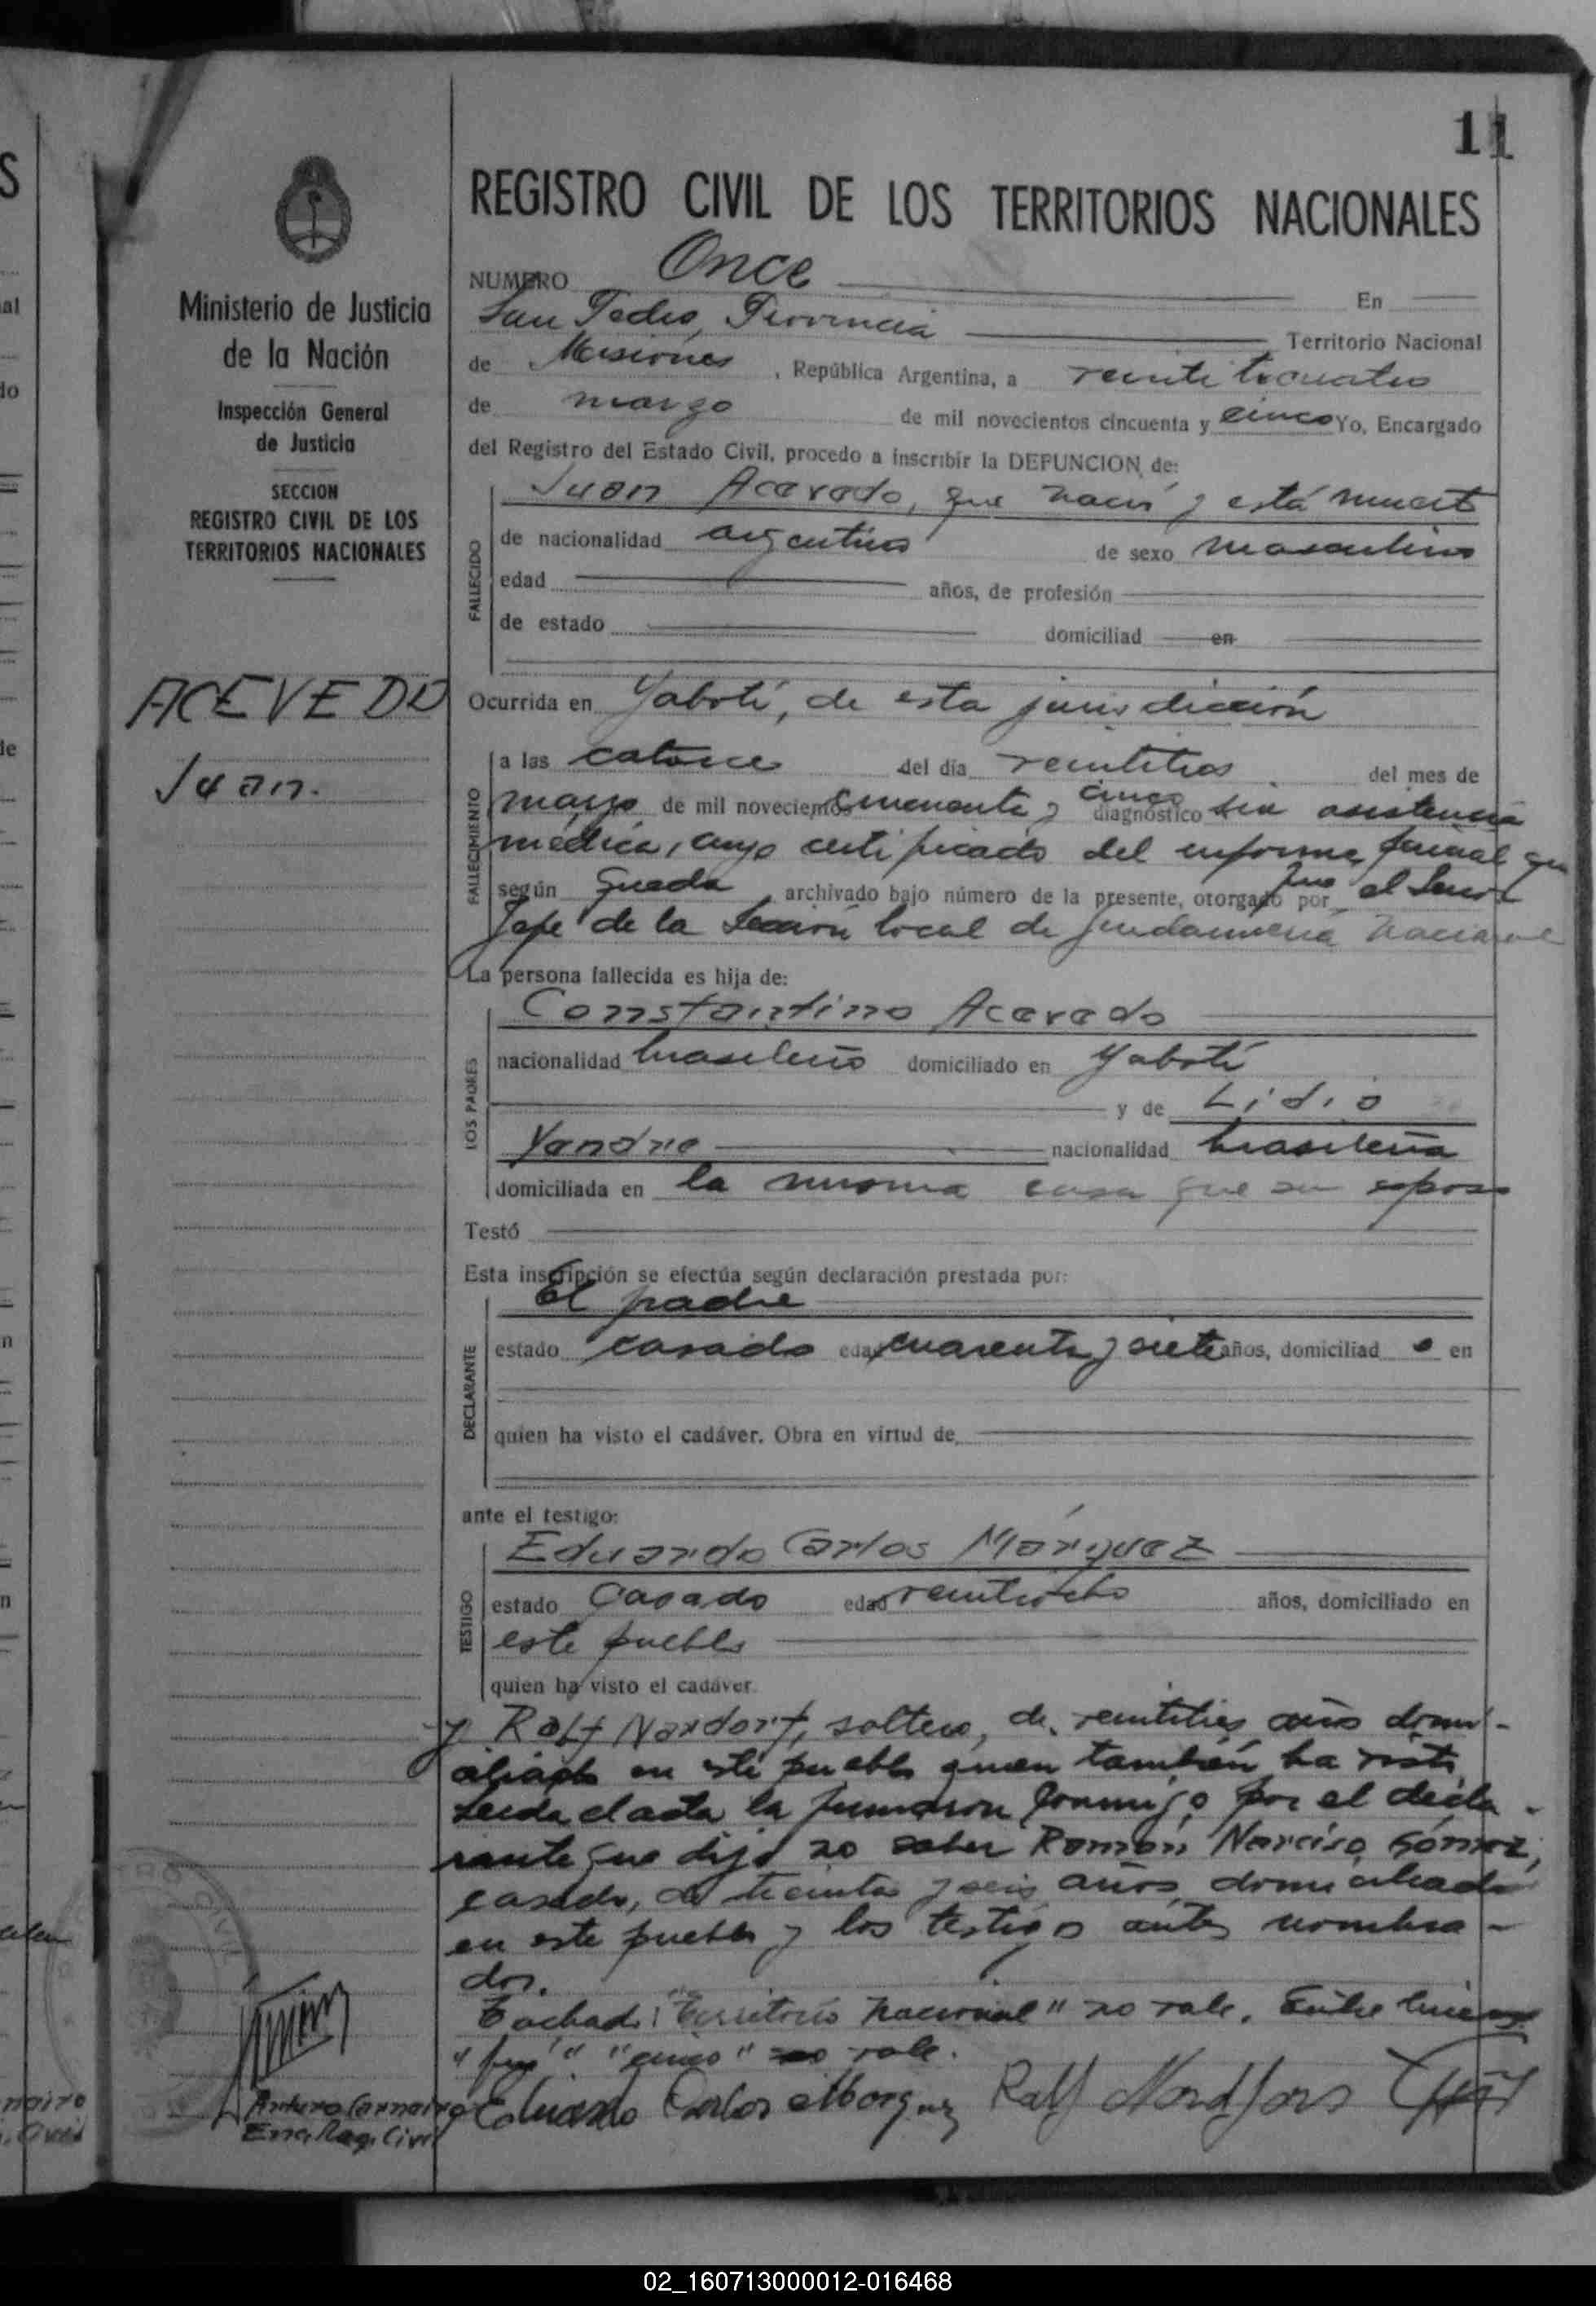 11
REGISTRO CIVIL DE LOS TERRITORIOS NACIONALES
Ministerio de Justicia
de la Nación
Inspección General
de Justicia
SECCION
REGISTRO CIVIL DE LOS
TERRITORIOS NACIONALES
ACEVEDO
Juan.
NUMERO Once En
San Pedro, Provincia Territorio Nacional
de Misiones, República Argentina, a veinticuatro
de marzo de mil novecientos cincuenta y cinco Yo, Encargado
del Registro del Estado Civil, procedo a inscribir la DEFUNCION de:
Juan Acevedo, que nació y está muert
FALLECIDO
de nacionalidad argentina de sexo masculino
edad años, de profesión
de estado domiciliad en
Ocurrida en Yabotí, de esta jurisdicción
FALLECIMIENTO
a las catorce del día veintitres del mes de
marzo de mil novecientos cincuenta y cinco diagnóstico sin asistencia
médica, cuyo certificado del informe que
según queda archivado bajo número de la presente, otorgado por el Señor
Jefe de la Sección local de Gendarmería Nacional
La persona fallecida es hija de:
LOS PADRES
Constantino Acevedo
nacionalidad brasileño domiciliado en Yabotí
y de Lidia
nacionalidad brasileña
domiciliada en la misma casa que su esposo
Testó
Esta inscripción se efectúa según declaración prestada por:
DECLARANTE
El padre
estado casado edad cuarenta y siete años, domiciliad o en
quien ha visto el cadáver. Obra en virtud de
ante el testigo:
TESTIGO
Eduardo Carlos Márquez
estado Casado edad veintiocho años, domiciliado en
este pueblo
quien ha visto el cadáver
y Rolf soltero, de veintitres años domi-
ciliado en este pueblo quien también ha visto
Leida el acta la firmaron conmigo por el decla-
rante que dijo no saber Ramón Narciso Gómez,
casado, de treinta y seis años domiciliado
en este pueblo y los testigos antes nombra-
dos.
Tachado: "Territorio Nacional" no vale. Entre lineas
"fue" "cinco" vale.
Eduardo Carlos Marquez
Enc. Reg. Civil
02_160713000012-016468